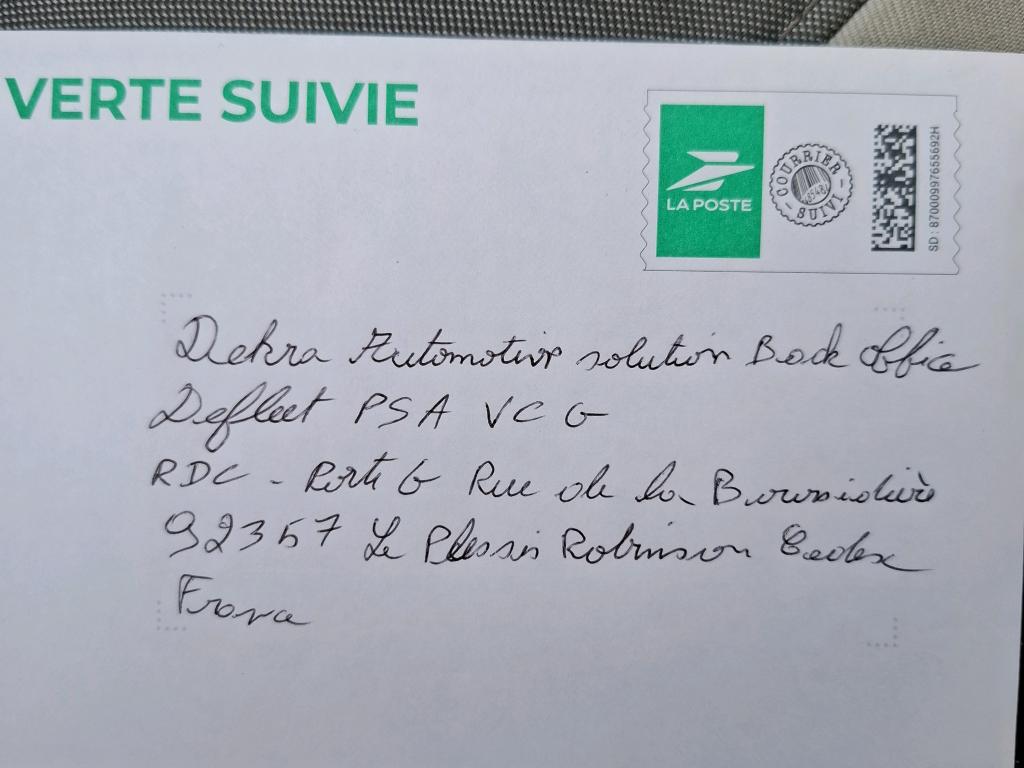 VERTE SUIVIE
LA POSTE
COURRIER
SUIVI
SD : 87000997655692H
Dekra Automotive solution Back Office
Defleet PSA VCG
RDC - Porte G Rue de la Boursidière
92357 Le Plessis Robinson Cedex
France